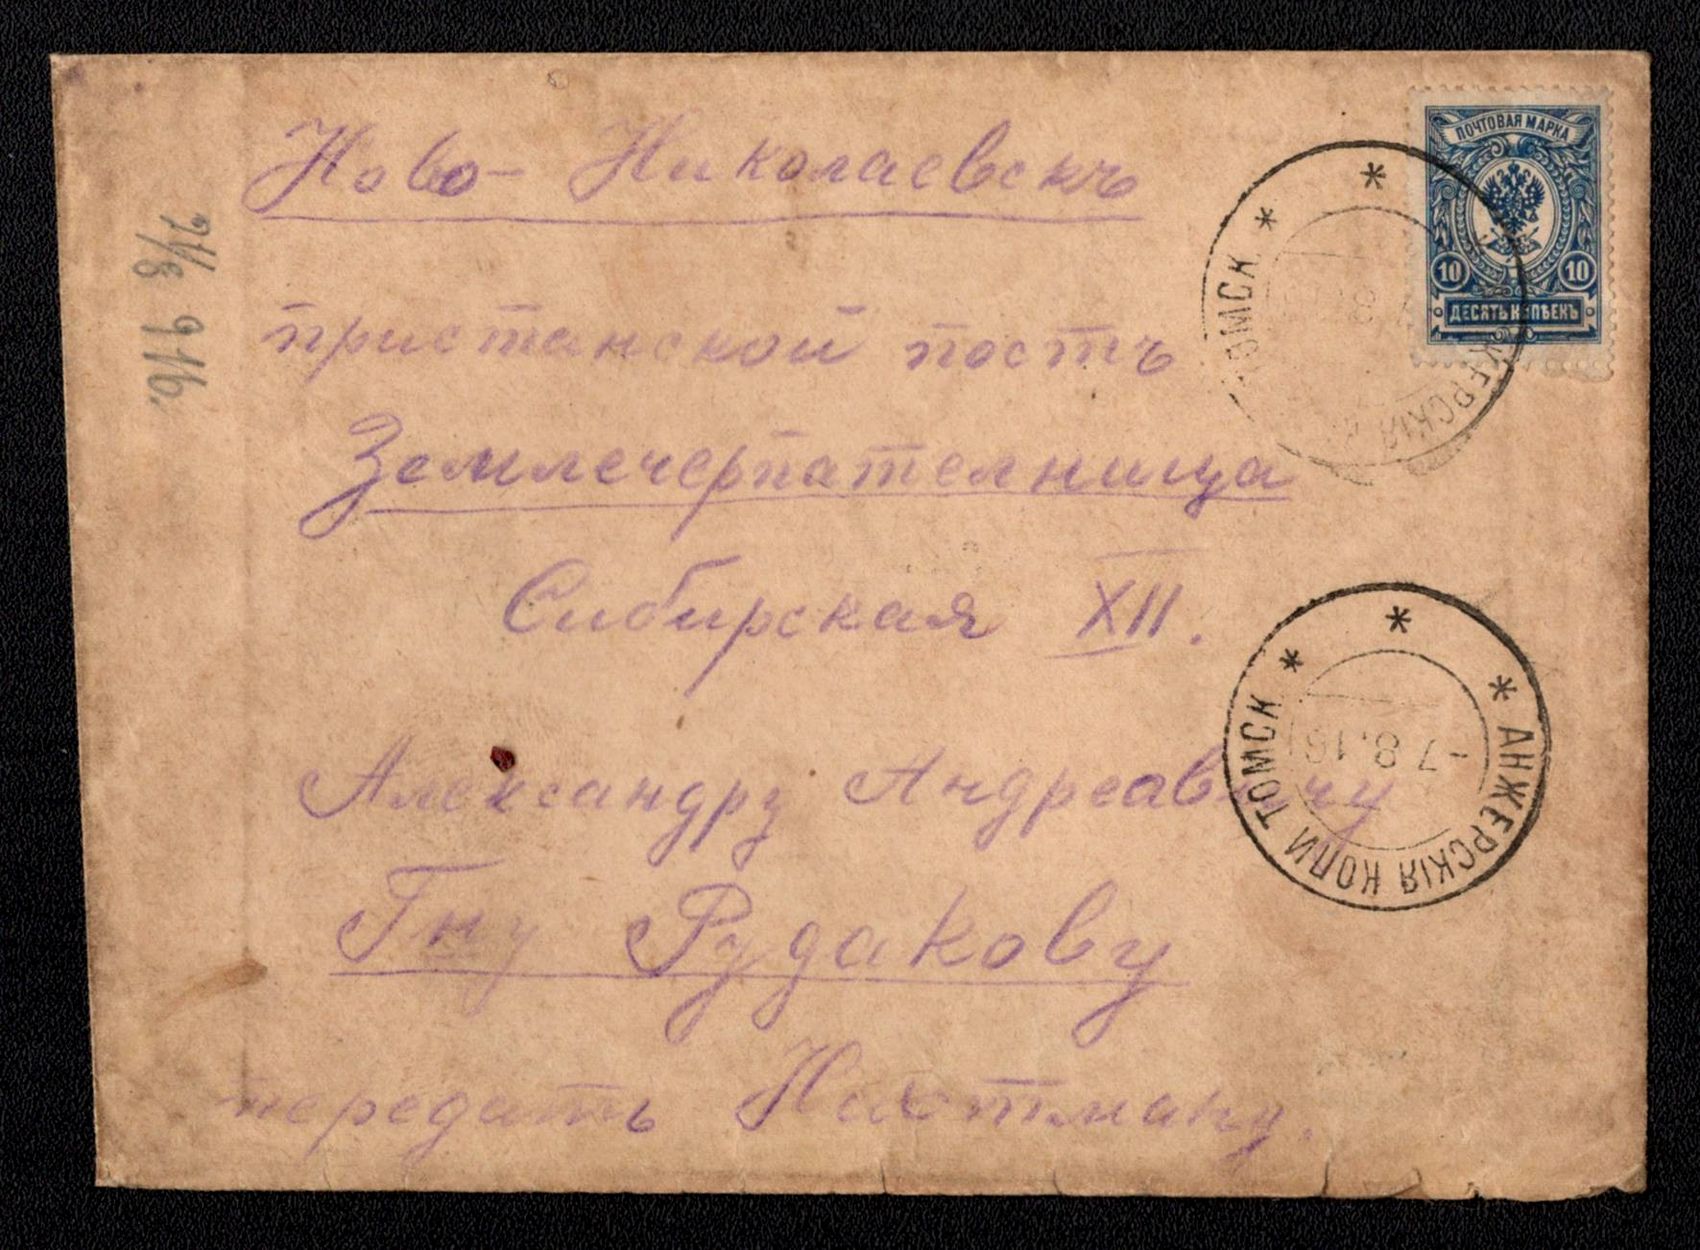 Ново-Николаевскъ
пристанской постъ
Землечерпателница
Сибирская XII.
Александру Андреавичу
Гну Рудакову
передать
ПОЧТОВАЯ МАРКА
10 10
ДЕСЯТЬ КОПѢЕКЪ
ТОМСК
АНЖЕРСКIЯ КОПИ ТОМСК
-7.8.16